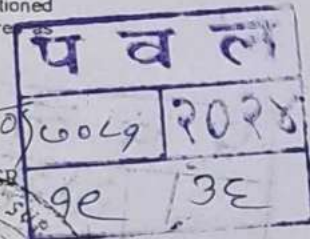 tioned
प व ल
७०८१ २०२४
१९ ३६